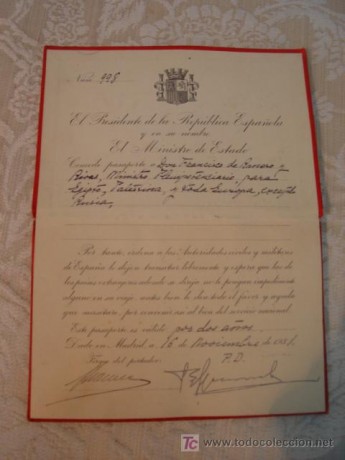 Núm. 998
El Presidente de la República Española
y en su nombre
El Ministro de Estado
Concede pasaporte a Don Francisco de Ramero y
Rivas, Ministro Plenipotenciario, para
Egipto, Palestina, y toda Europa, excepto
Rusia,
Por tanto, ordena a las Autoridades civiles y militares
de España le dejen transitar libremente y espera que las de
los países extranjeros adonde se dirija no le pongan impedimento
alguno en su viaje, antes bien le den todo el favor y ayuda
que necesitare, por convenir así al bien del servicio nacional.
Este pasaporte es válido por dos años.
Dado en Madrid, a 16 de Noviembre de 193
Firma del portador, P.D.
todocoleccion.net